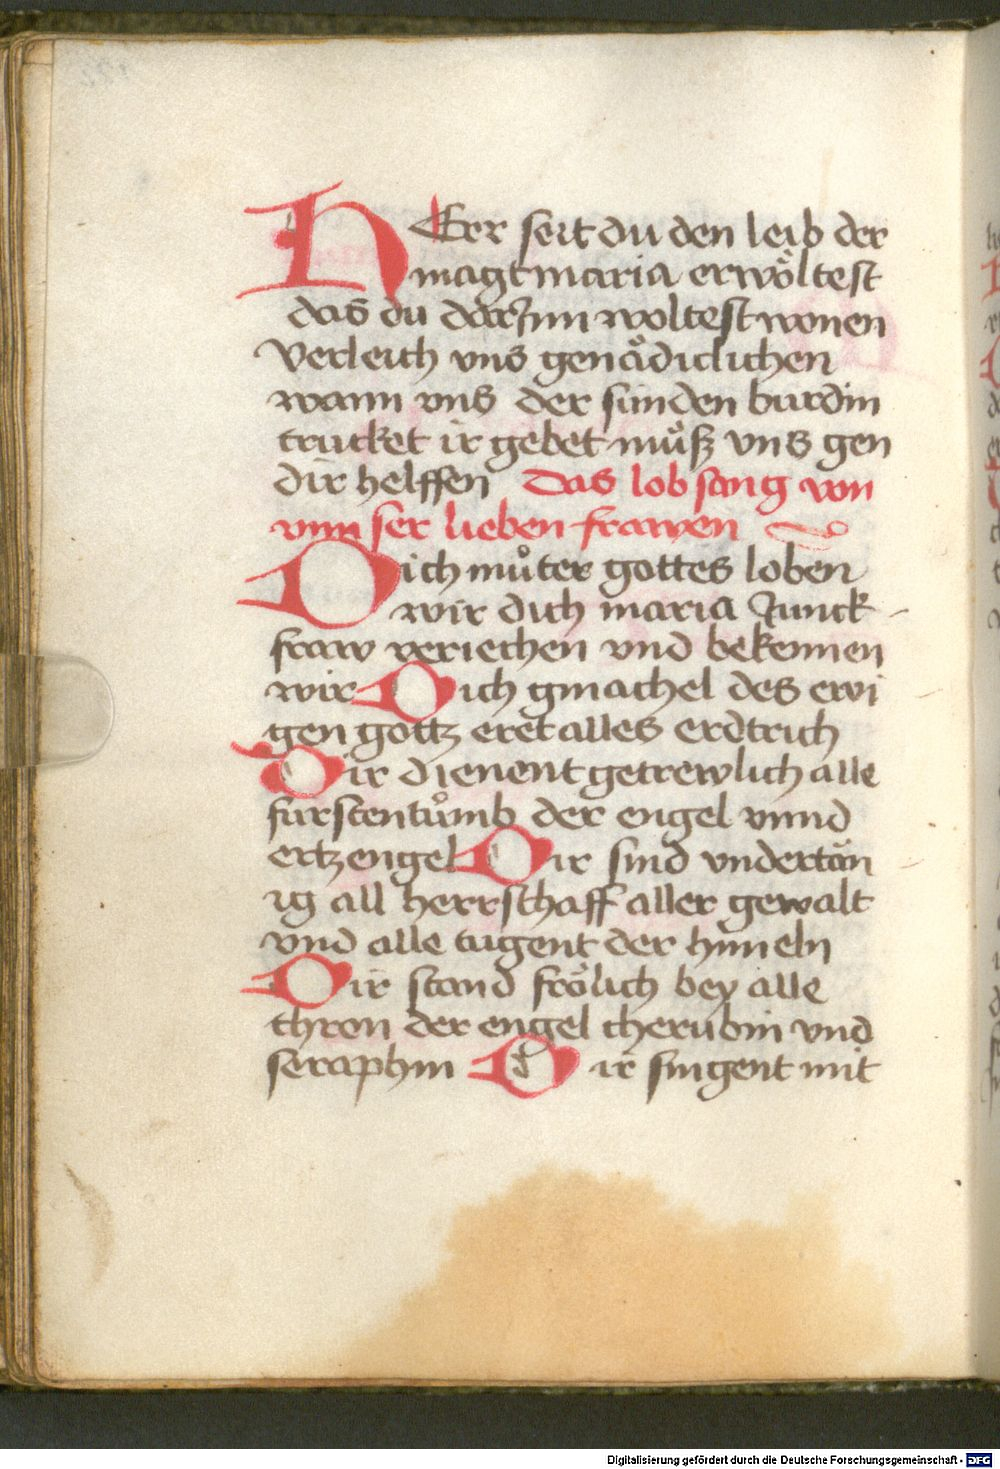 HErr seit du den leib der
magt maria erwöltest
das du darJnn woltest wonen
Verleich vns genädiclichen
wann vns der sünden burdin
trucket ir gebet müß vns gen
dir helffen Das lob sang von
vnn ser lieben frawen
Dich můter gottes loben
wir dich maria Junck-
fraw veriechen vnd bekennen
wir Dich gmachel des ewi
gen gottz eret alles erdtrich
Dir dienent getrewlich alle
furstentůmb der engel vnnd
ertzengel Dir sind vndertän
ig all herrschaff aller gewalt
vnd alle tugent der himeln
Dir stand frölich bey alle
thron der engel cherubin vnd
seraphin Dir singent mit
Digitalisierung gefördert durch die Deutsche Forschungsgemeinschaft - DFG